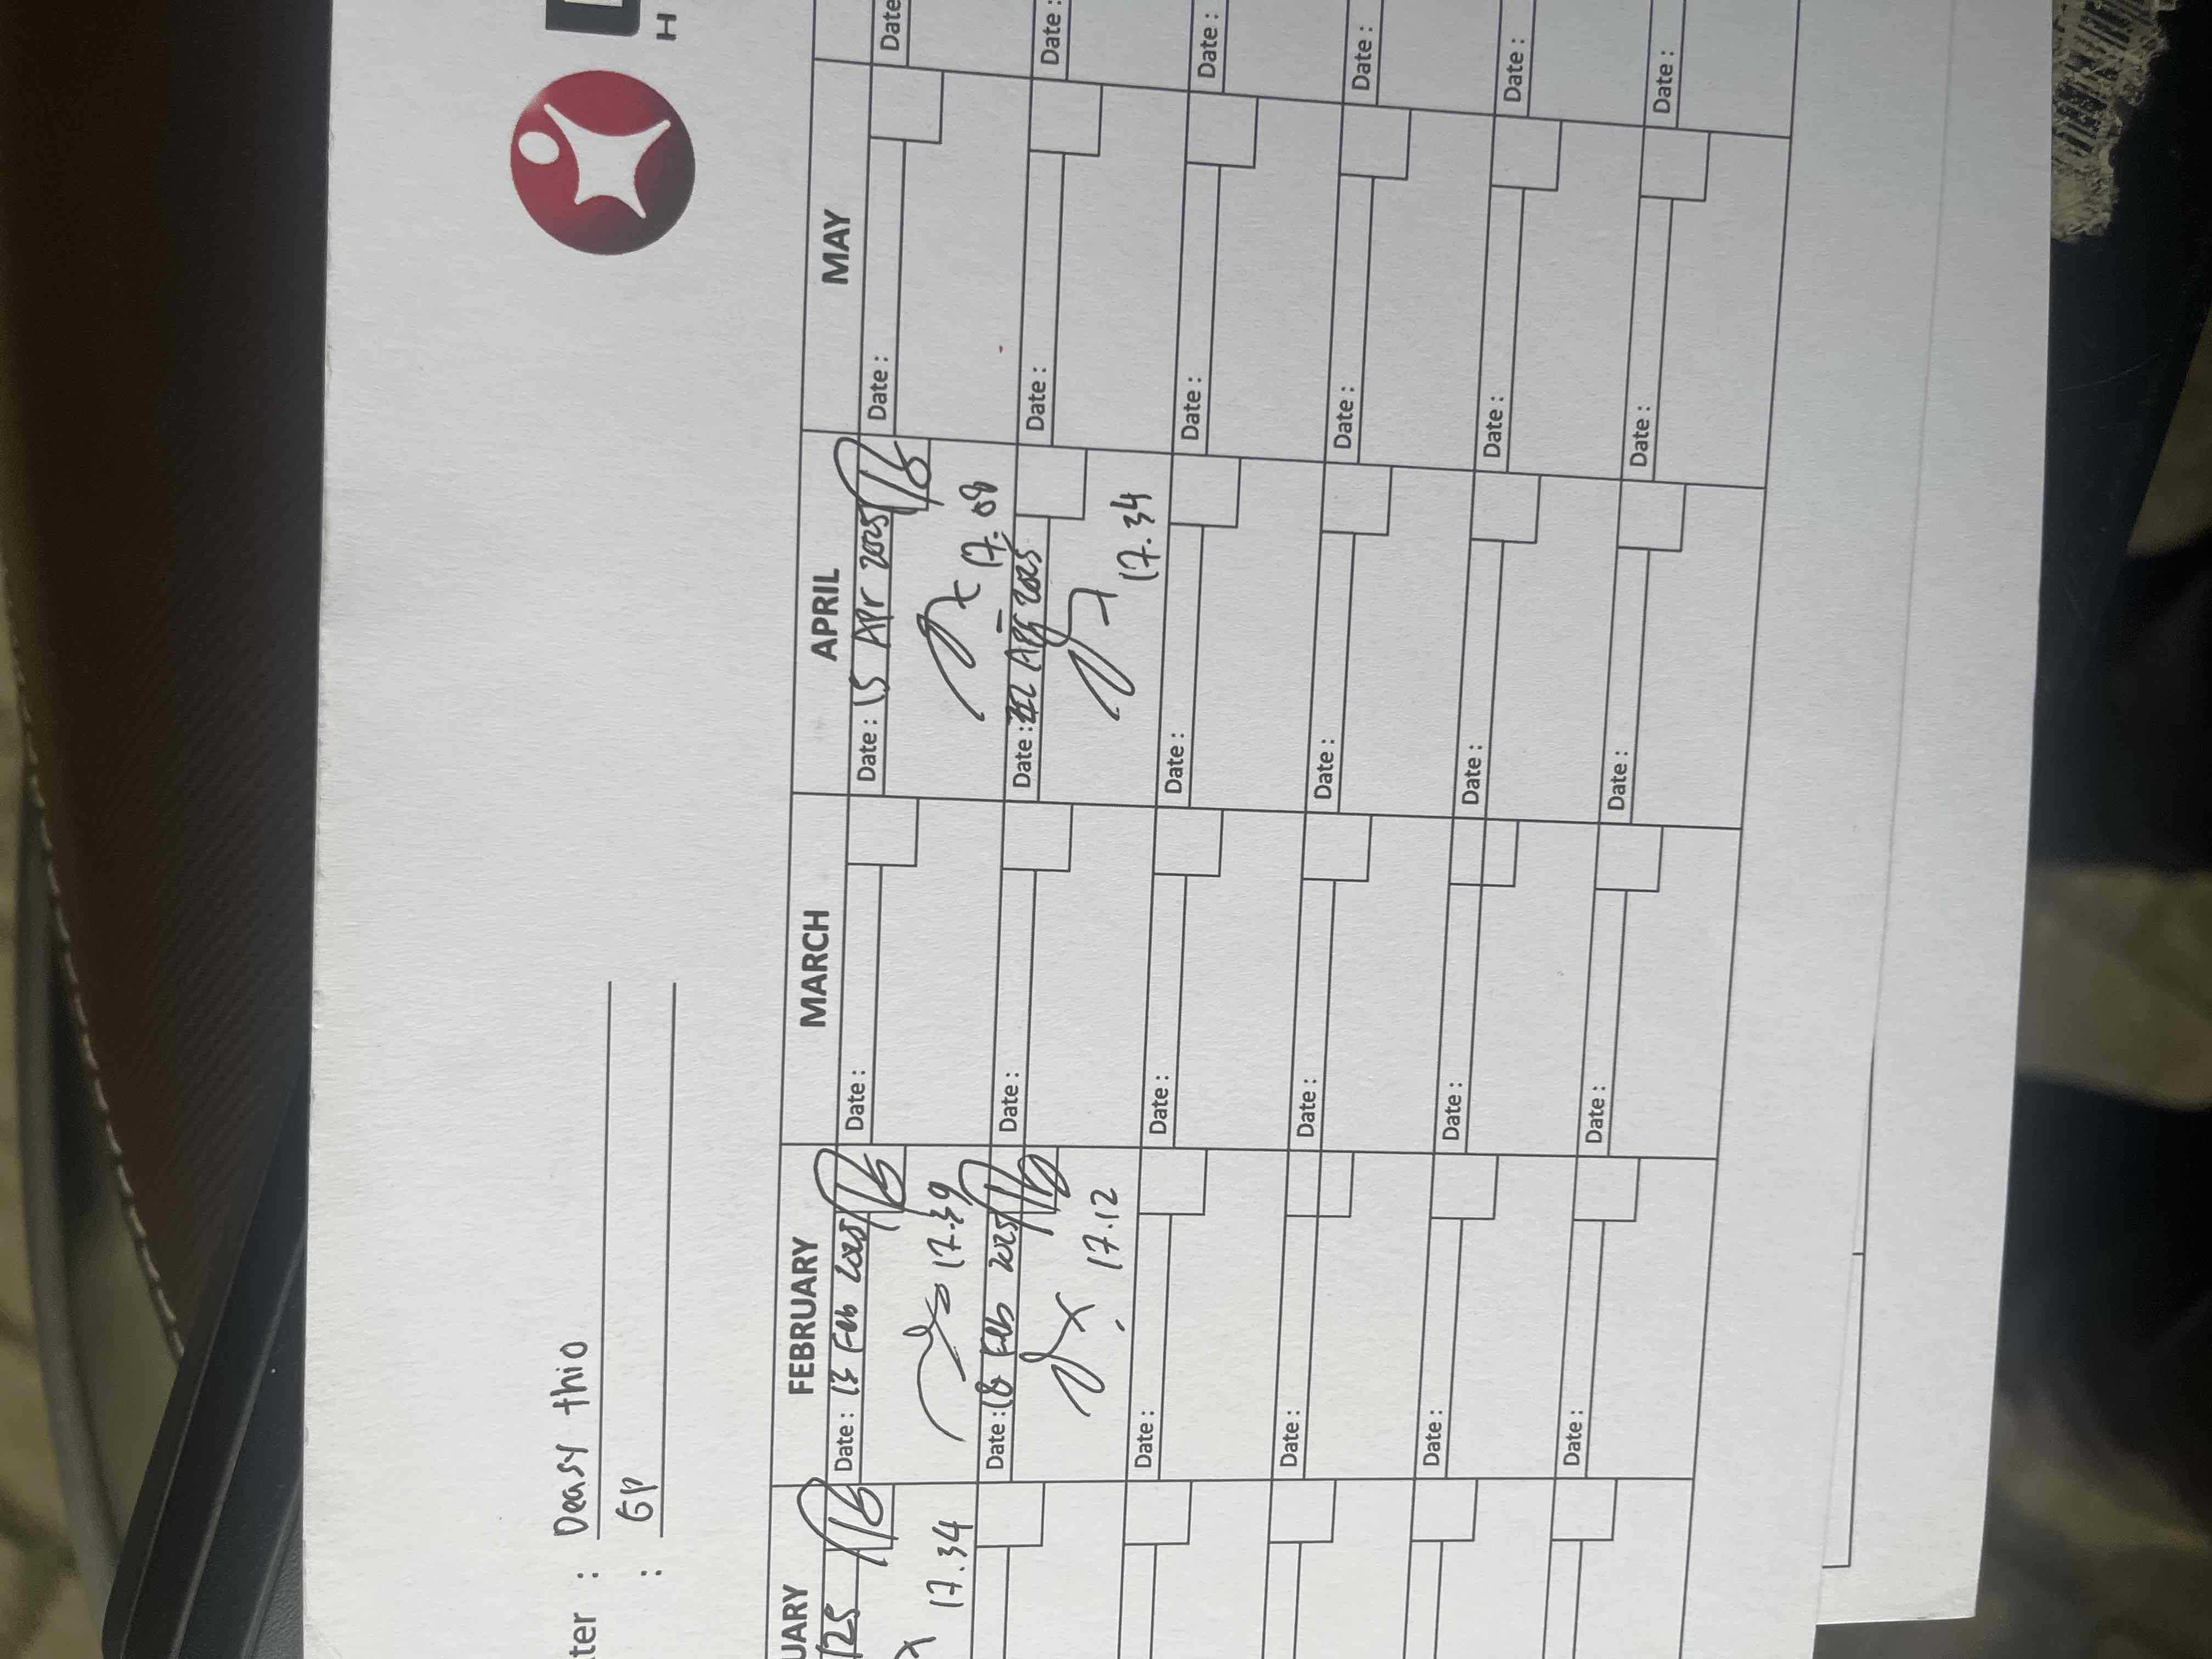 H
ter : Deasy thio
: GP
UARY FEBRUARY MARCH APRIL MAY
125 Date : 13 Feb 2025 Date : Date : 15 Apr 2025 Date : Date
17.34 17.39 17.08
Date : 18 Feb 2025 Date : Date : Apr 2025 Date : Date :
17.12 17.34
Date : Date : Date : Date : Date :
Date : Date : Date : Date : Date :
Date : Date : Date : Date : Date :
Date : Date : Date : Date : Date :